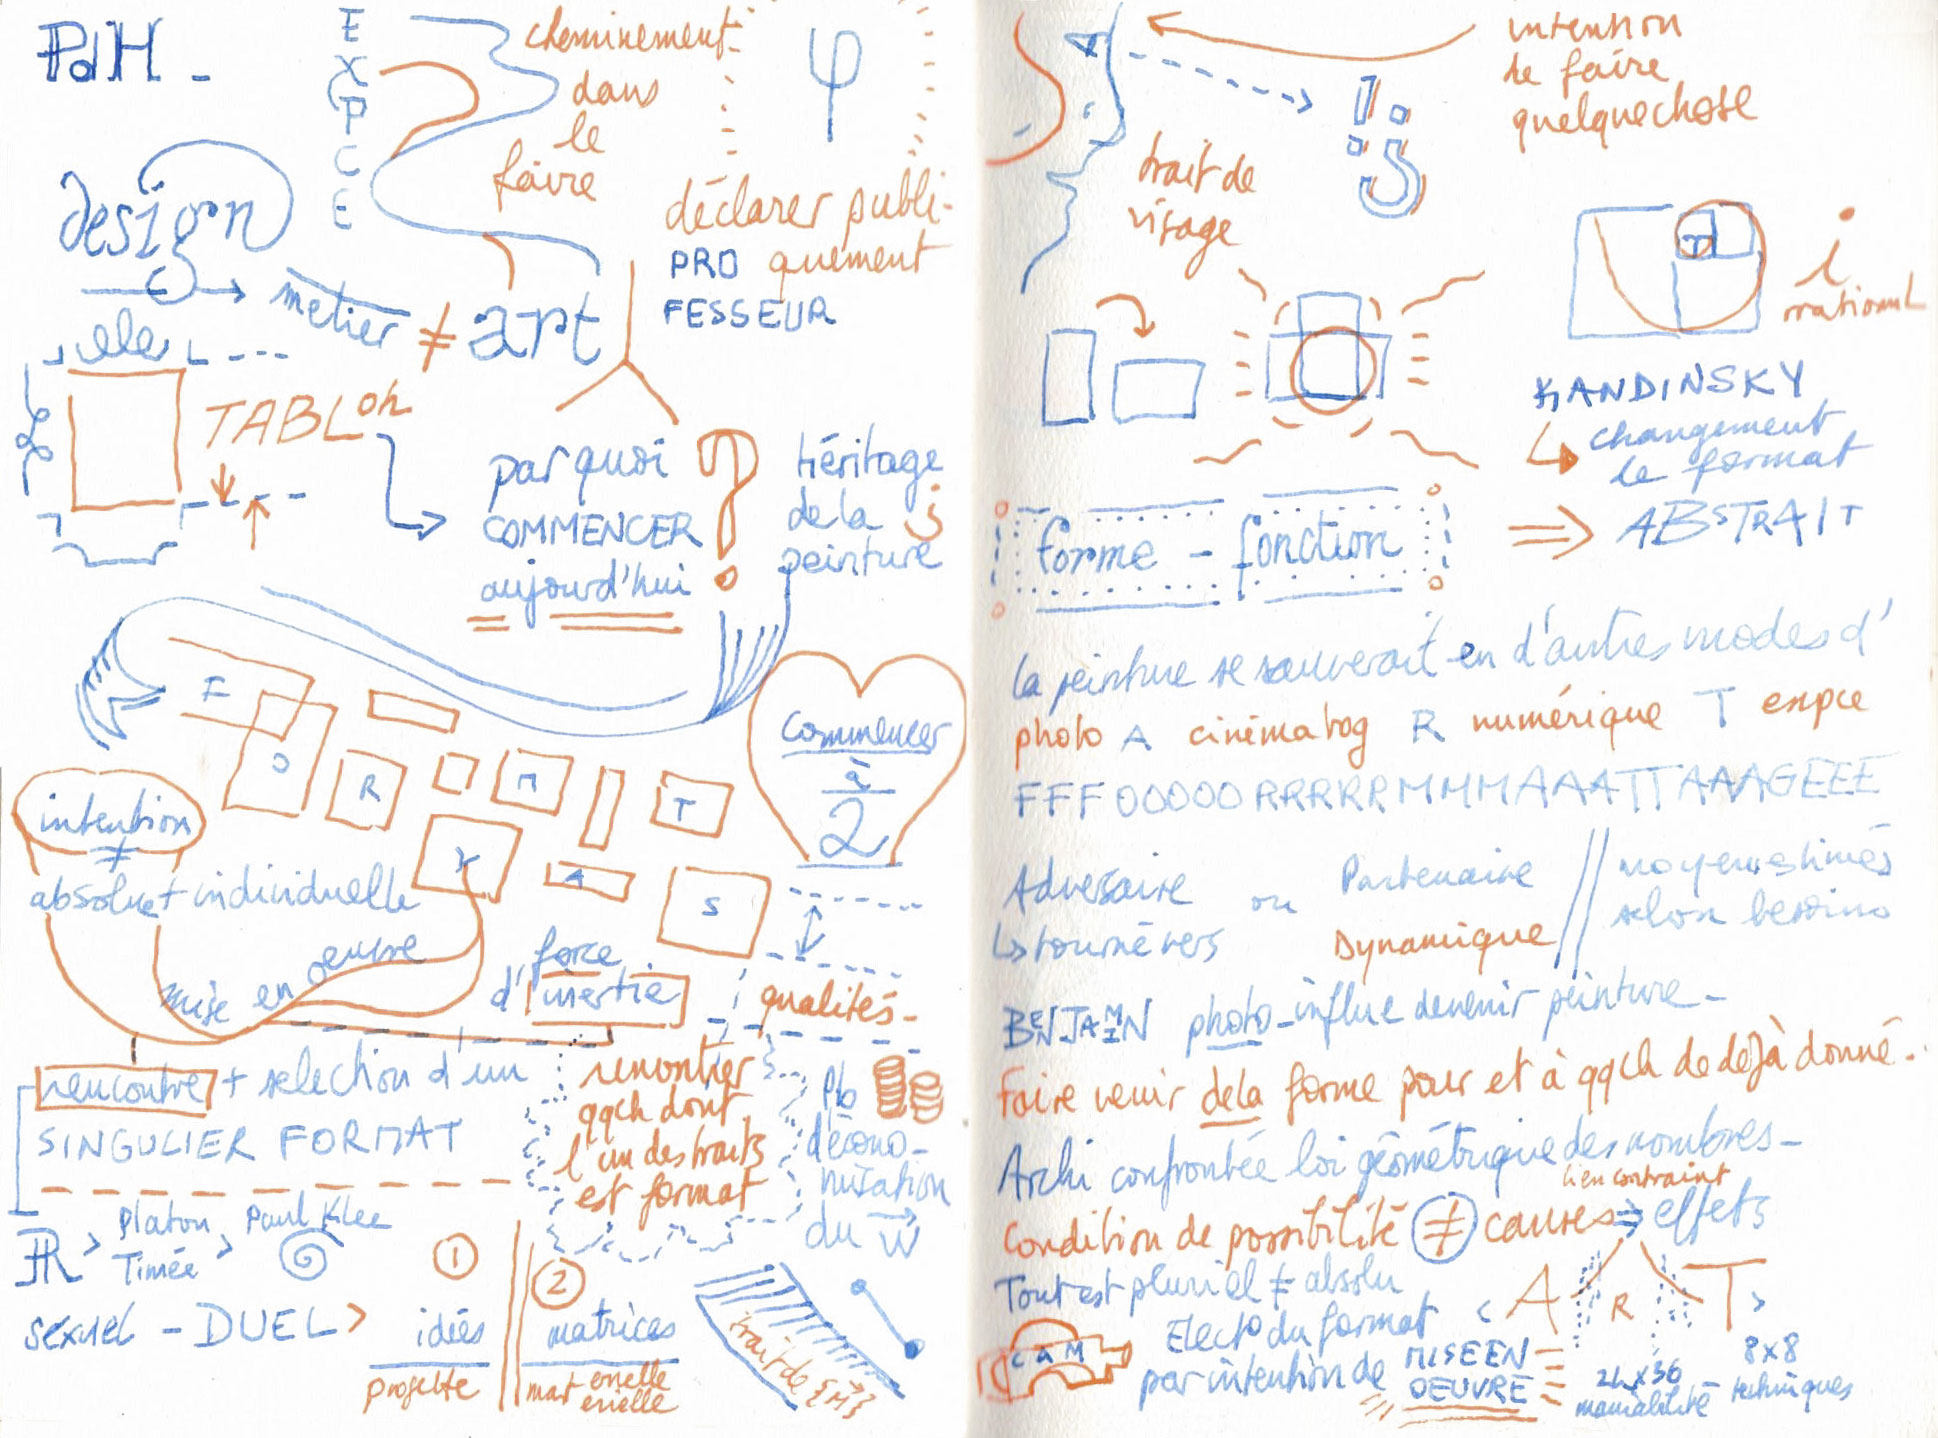 PdH -
EXPCE
cheminement
dans
le
faire
φ
déclarer publi-
quement
PRO
FESSEUR
design
métier ≠ art
elle
TABLoh
par quoi
COMMENCER
aujourd'hui
?
Héritage
de la
peinture
F
O
R
M
T
A
S
Commencer
à
2
intention
≠
absolue + individuelle
mise en oeuvre
force
d'inertie
qualités -
rencontre + selection d'un
SINGULIER FORMAT
rencontrer
qqch dont
l'un des traits
est format
Pb
d'écono-
mutation
du W
R > Platon, Paul Klee
Timée >
sexuel - DUEL >
1
idées
projette
2
matrices
mat erielle
érielle
trait de {M}
intention
de faire
quelquechose
trait de
visage
i
rrationnel
KANDINSKY
changement
de format
⇒ ABSTRAIT
forme - fonction
la peinture se sauverait en d'autres modes d'
photo A cinématog R numérique T expce
FFFOOOOORRRRRMMMAAATTAAAGEEE
Adversaire ou Partenaire
↳ tourné vers Dynamique
moyens estimés
selon besoins
BENJAMIN photo - influe devenir peinture -
Faire venir de la forme pour et à qqch de déjà donné.
Archi confrontée loi géométrique des nombres -
lien contraint
Condition de possibilité ≠ causes ⇒ effets
Tout est pluriel ≠ absolu
< A R T >
CAM
Electo du format
par intention de MISE EN
OEUVRE
24x36
maniabilité -
8x8
techniques